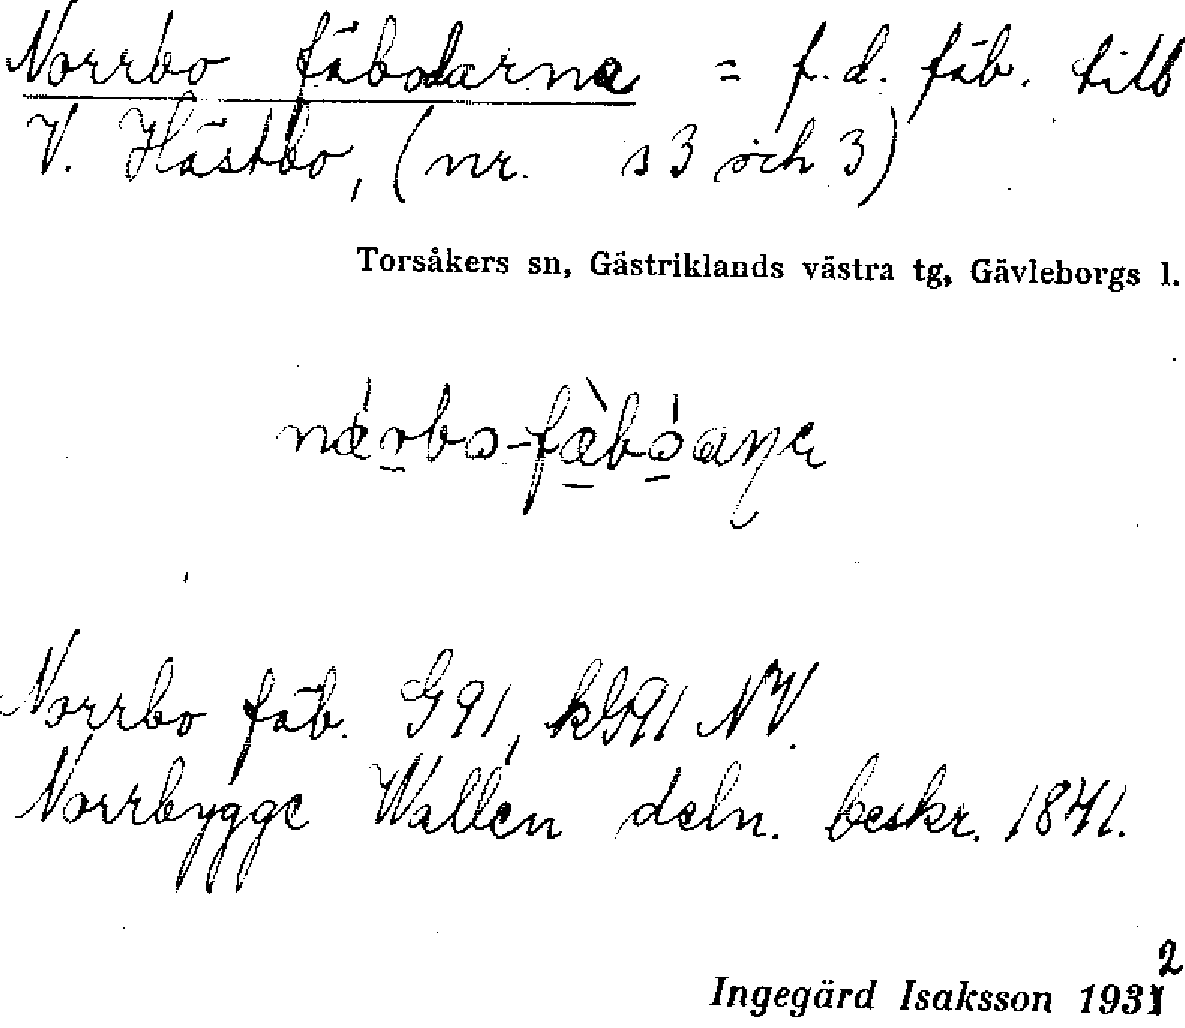 Norrbo fäbodarna = f. d. fäb. till
V. Hästbo, (nr. s 3 och 3)
Torsåkers sn, Gästriklands västra tg, Gävleborgs l.
Norrbo fäb. G91, kG91 NV.
Norrbygge Wallen deln. beskr. 1841.
Ingegärd Isaksson 1932